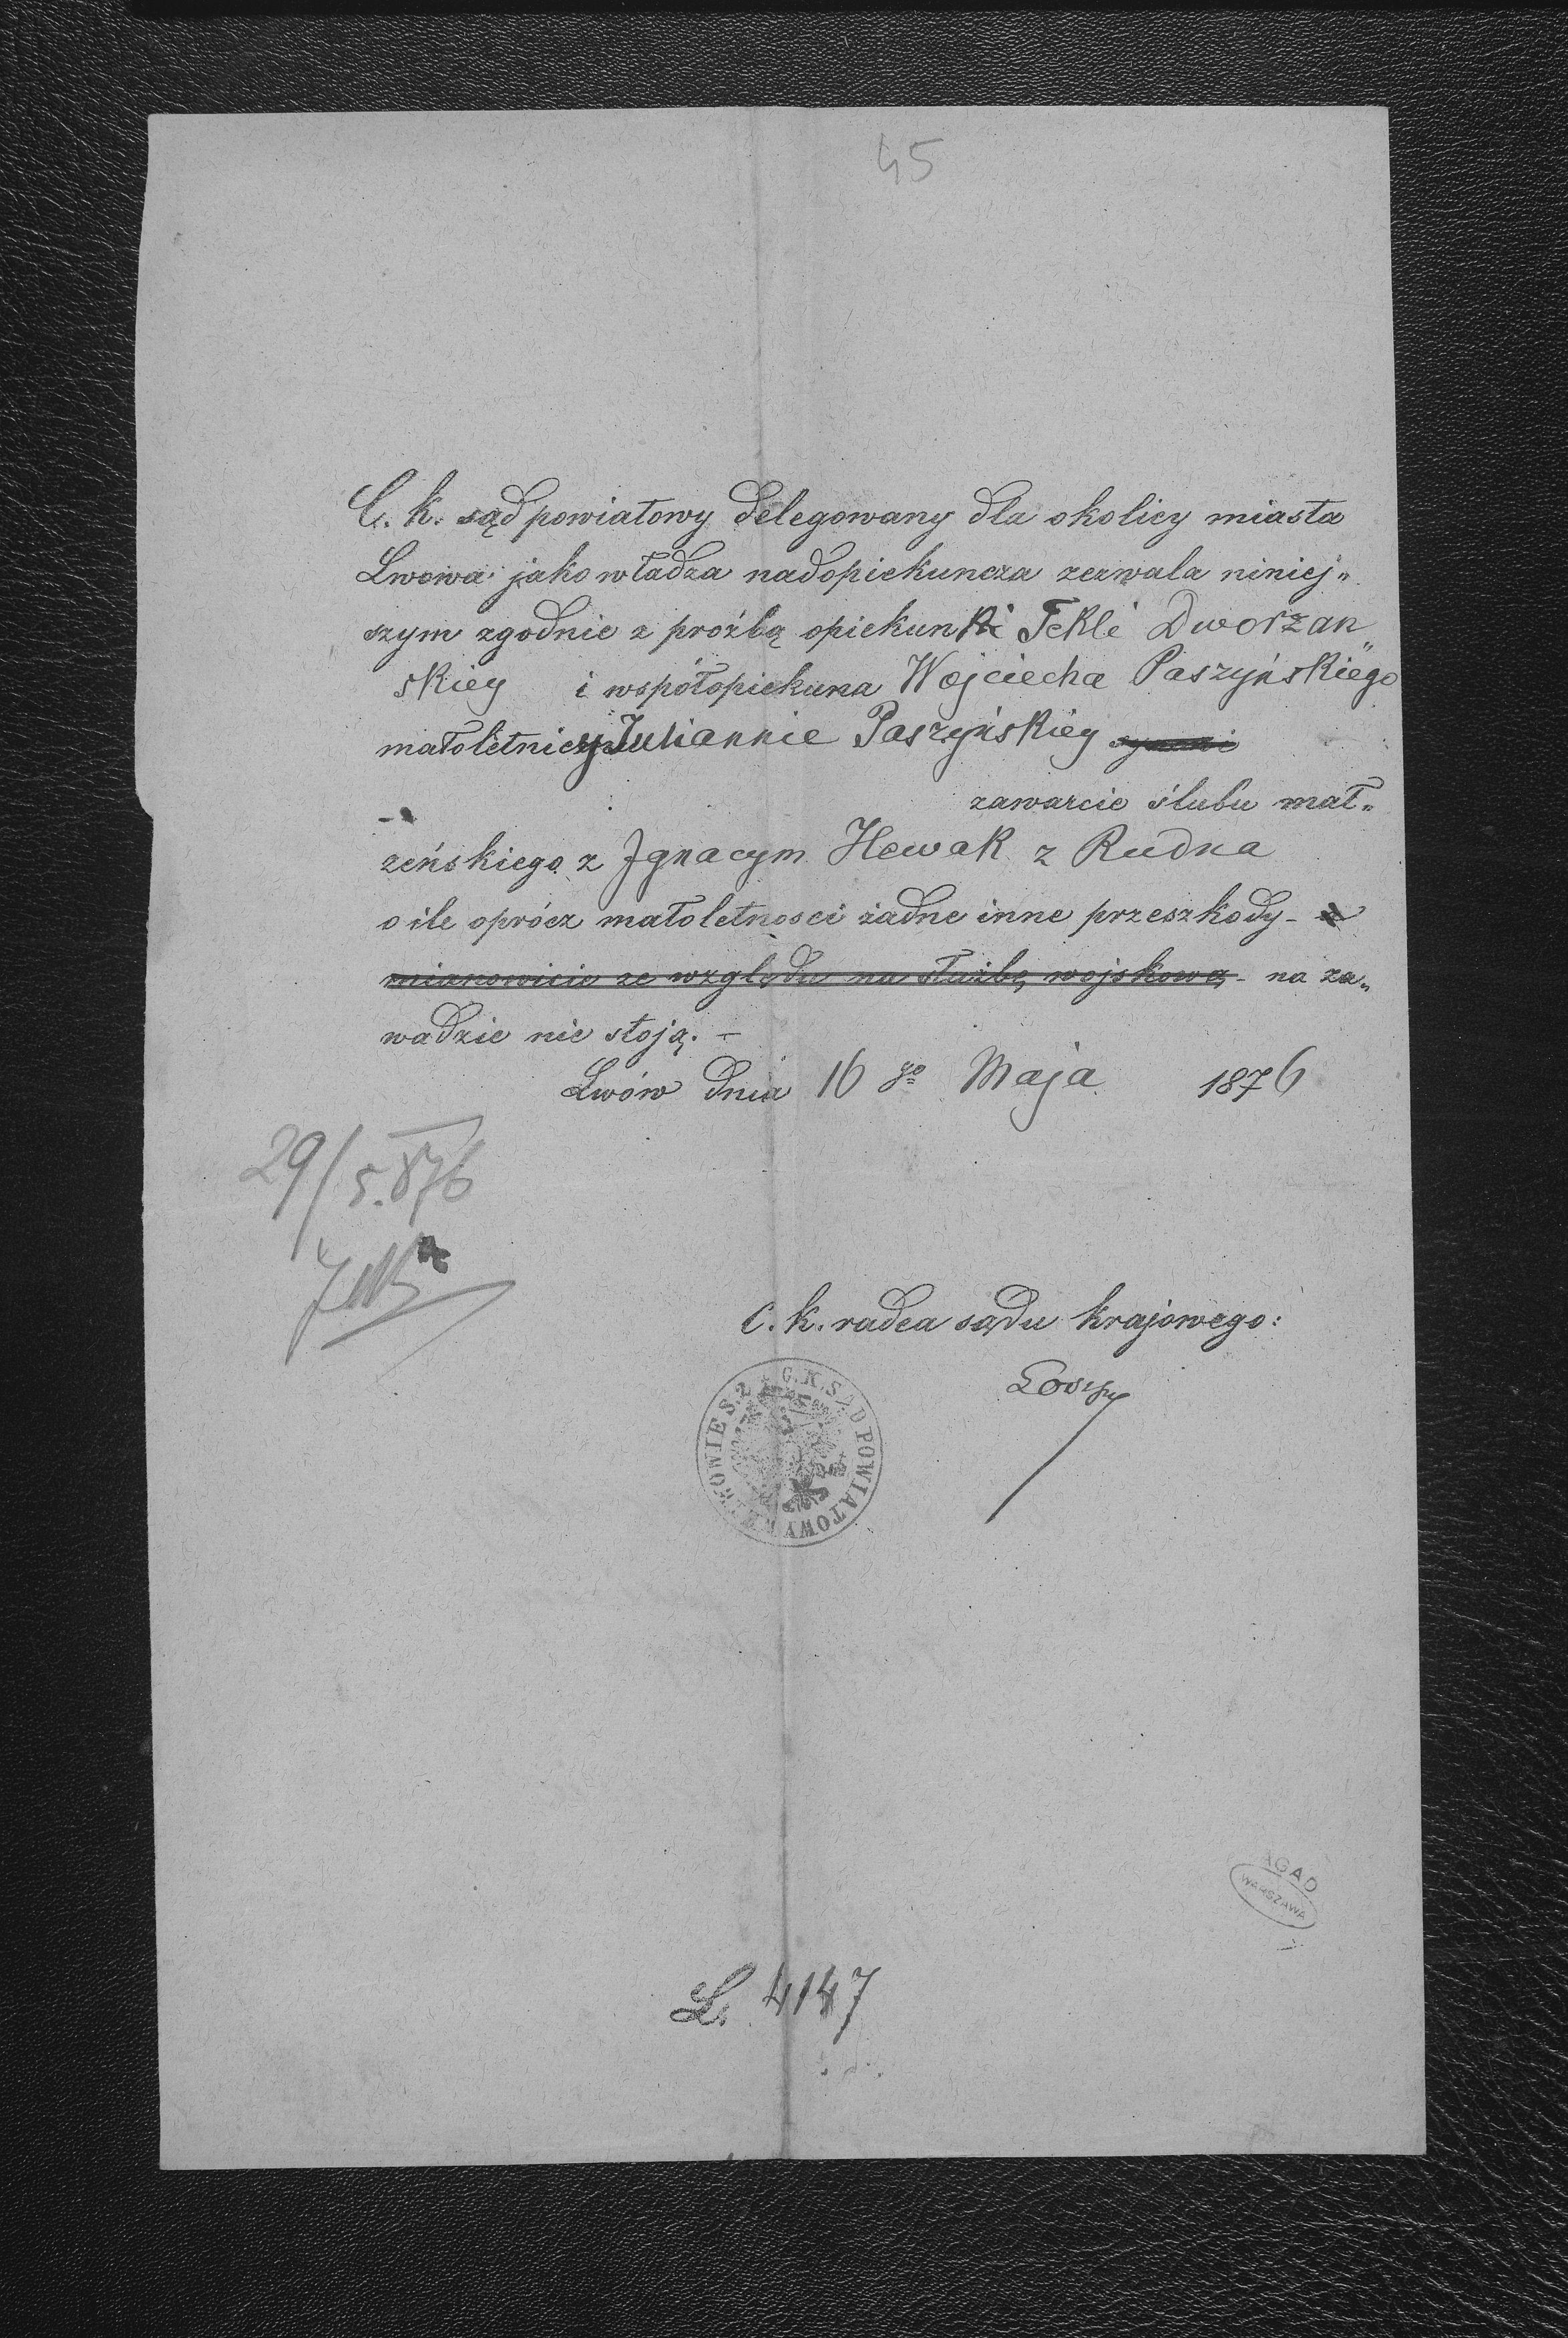 45
C. k. sąd powiatowy delegowany dla okolicy miasta
Lwowa jako władza nadopiekuncza zezwala niniej„
szym zgodnie z prożbą opiekunki Tekli Dworzan„
skiey i współopiekuna Wojciecha Paszyńskiego
małoletniey Juliannie Paszyńskiey
zawarcie ślubu mał„
żeńskiego z Ignacym Hewak z Rudna
o ile oprócz małoletnosci żadne inne przeszkody -
mianowicie ze względu na służbę wojskową - na za„
wadzie nie stoją. -
Lwów dnia 16 go Maja 1876
29/5.876
C. k. radca sądu krajowego:
C.K. SĄD POWIATOWY WE LWOWIE S. 2
AGAD
WARSZAWA
L. 4147